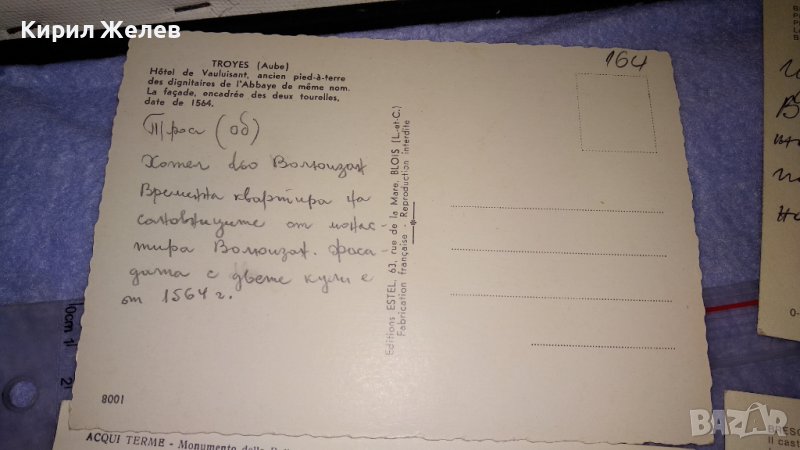 Кирил Желев
164
TROYES (Aube)
Hôtel de Vauluisant, ancien pied-à-terre
des dignitaires de l'Abbaye de même nom.
La façade, encadrée des deux tourelles,
date de 1564.
Троа (Об)
Хотел дьо Волюизан
Времена квартира на
сановниците от манас-
тира Волюизан. Фаса-
дата с двете кули е
от 1564 г.
Editions ESTEL, 63, rue de la Mare, BLOIS (L.-et-C.)
Fabrication française - Reproduction interdite
8001
ACQUI TERME - Monumento
BRESC
Il cast
0cm 1
BAZAR